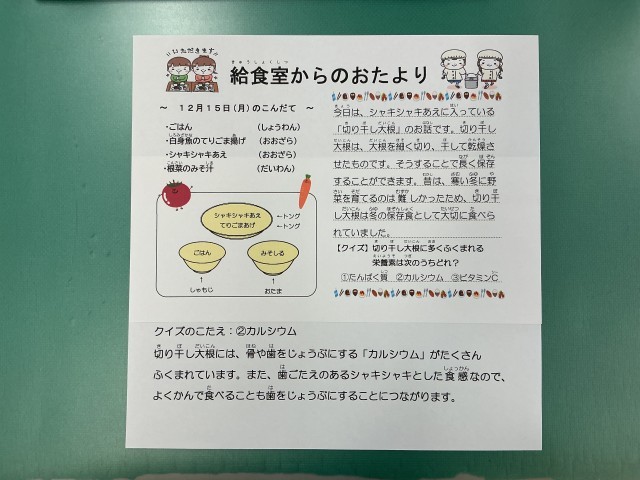 いただきます
給食室からのおたより
～ 12月15日(月)のこんだて ～
・ごはん (しょうわん)
・白身魚のてりごま揚げ (おおざら)
・シャキシャキあえ (おおざら)
・根菜のみそ汁 (だいわん)
シャキシャキあえ ←トング
てりごまあげ ←トング
ごはん みそしる
↑ ↑
しゃもじ おたま
今日は、シャキシャキあえに入っている
「切り干し大根」のお話です。切り干し
大根は、大根を細く切り、干して乾燥さ
せたものです。そうすることで長く保存
することができます。昔は、寒い冬に野
菜を育てるのは難しかったため、切り干
し大根は冬の保存食として大切に食べら
れていました。
【クイズ】切り干し大根に多くふくまれる
栄養素は次のうちどれ?
①たんぱく質 ②カルシウム ③ビタミンC
クイズのこたえ：②カルシウム
切り干し大根には、骨や歯をじょうぶにする「カルシウム」がたくさん
ふくまれています。また、歯ごたえのあるシャキシャキとした食感なので、
よくかんで食べることも歯をじょうぶにすることにつながります。